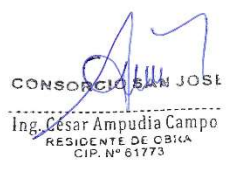 CONSORCIO SAN JOSE
Ing. César Ampudia Campo
RESIDENTE DE OBRA
CIP. Nº 61773